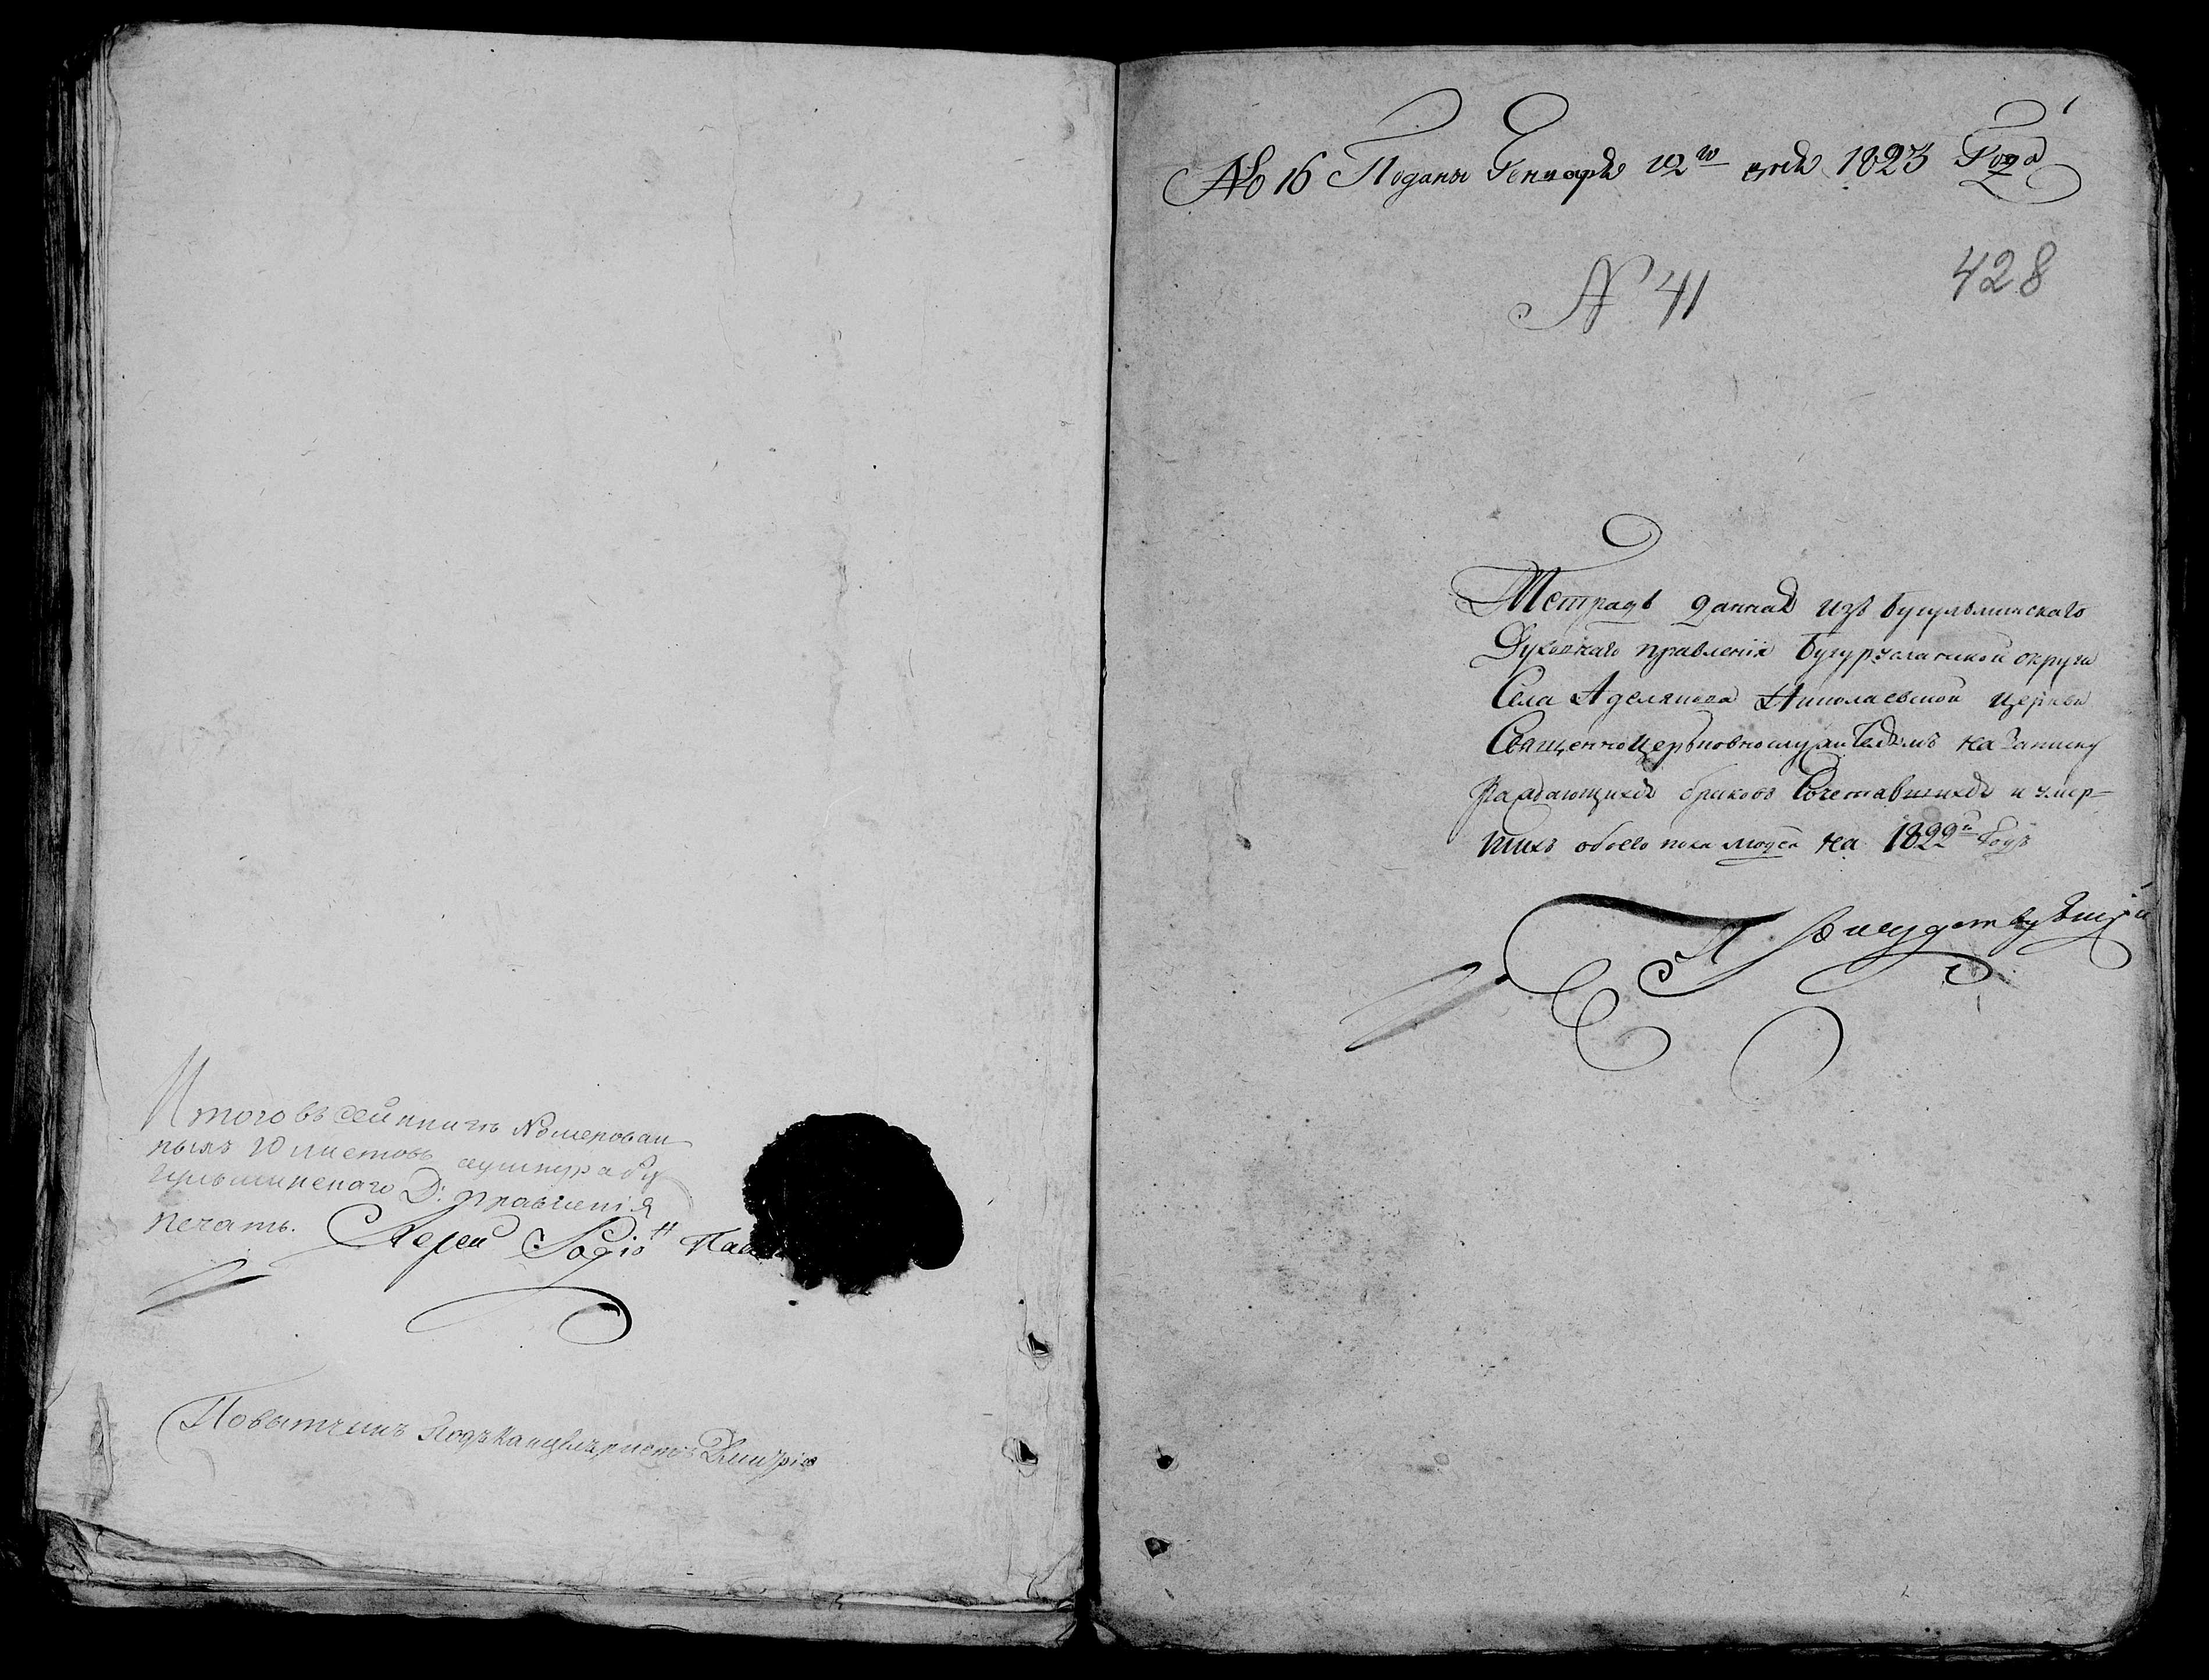 Итого въ сей книгѣ Номерован
ныхъ 10 листовъ у шнура Бу
гульминскаго Д: правленія
печать. Іерей Родіонъ Пав
Повытчикъ Подъканцеляристъ Дмитрiев
1
№ 16 Поданы Генваря 12го дня 1823 Года
N 41
428
Тетрадь данная изъ Бугульминскаго
Духовнаго правленія Бугурусланской округи
Села Аделякова Николаевской церкви
Священноцерьковнослужителямъ на Записку
Раждающихся браковъ Сочетавшихся и умер-
шихъ обоего пола людей на 1822й Годъ
Присудствующій